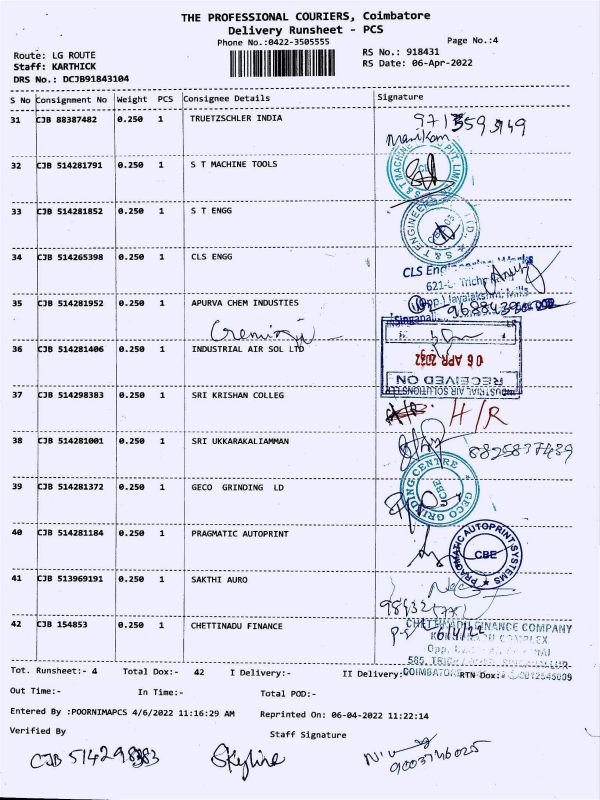 THE PROFESSIONAL COURIERS, Coimbatore
Delivery Runsheet - PCS
Phone No.:0422-3505555
Page No.:4
Route: LG ROUTE
RS No.: 918431
Staff: KARTHICK
RS Date: 06-Apr-2022
DRS No.: DCJB91843104
S No Consignment No Weight PCS Consignee Details Signature
31 CJB 88387482 0.250 1 TRUETZSCHLER INDIA
Manikam
32 CJB 514281791 0.250 1 S T MACHINE TOOLS
33 CJB 514281852 0.250 1 S T ENGG
34 CJB 514265398 0.250 1 CLS ENGG
CLS Engineering Works
35 CJB 514281952 0.250 1 APURVA CHEM INDUSTIES
36 CJB 514281406 0.250 1 INDUSTRIAL AIR SOL LTD
06 APR 2022
RECEIVED ON
INDUSTRIAL AIR SOLUTIONS LLP
37 CJB 514298383 0.250 1 SRI KRISHAN COLLEG
H/R
38 CJB 514281001 0.250 1 SRI UKKARAKALIAMMAN
8825837439
39 CJB 514281372 0.250 1 GECO GRINDING LD
GECO GRINDING CENTRE
CBE
40 CJB 514281184 0.250 1 PRAGMATIC AUTOPRINT
PRAGMATIC AUTOPRINT SYSTEMS
CBE
41 CJB 513969191 0.250 1 SAKTHI AURO
42 CJB 154853 0.250 1 CHETTINADU FINANCE
CHETTINADU FINANCE COMPANY
Tot. Runsheet:- 4 Total Dox:- 42 I Delivery:- II Delivery: RTN Dox:
Out Time:- In Time:- Total POD:-
Entered By :POORNIMAPCS 4/6/2022 11:16:29 AM Reprinted On: 06-04-2022 11:22:14
Verified By Staff Signature
CJB 514298383 Skyline
9003746025